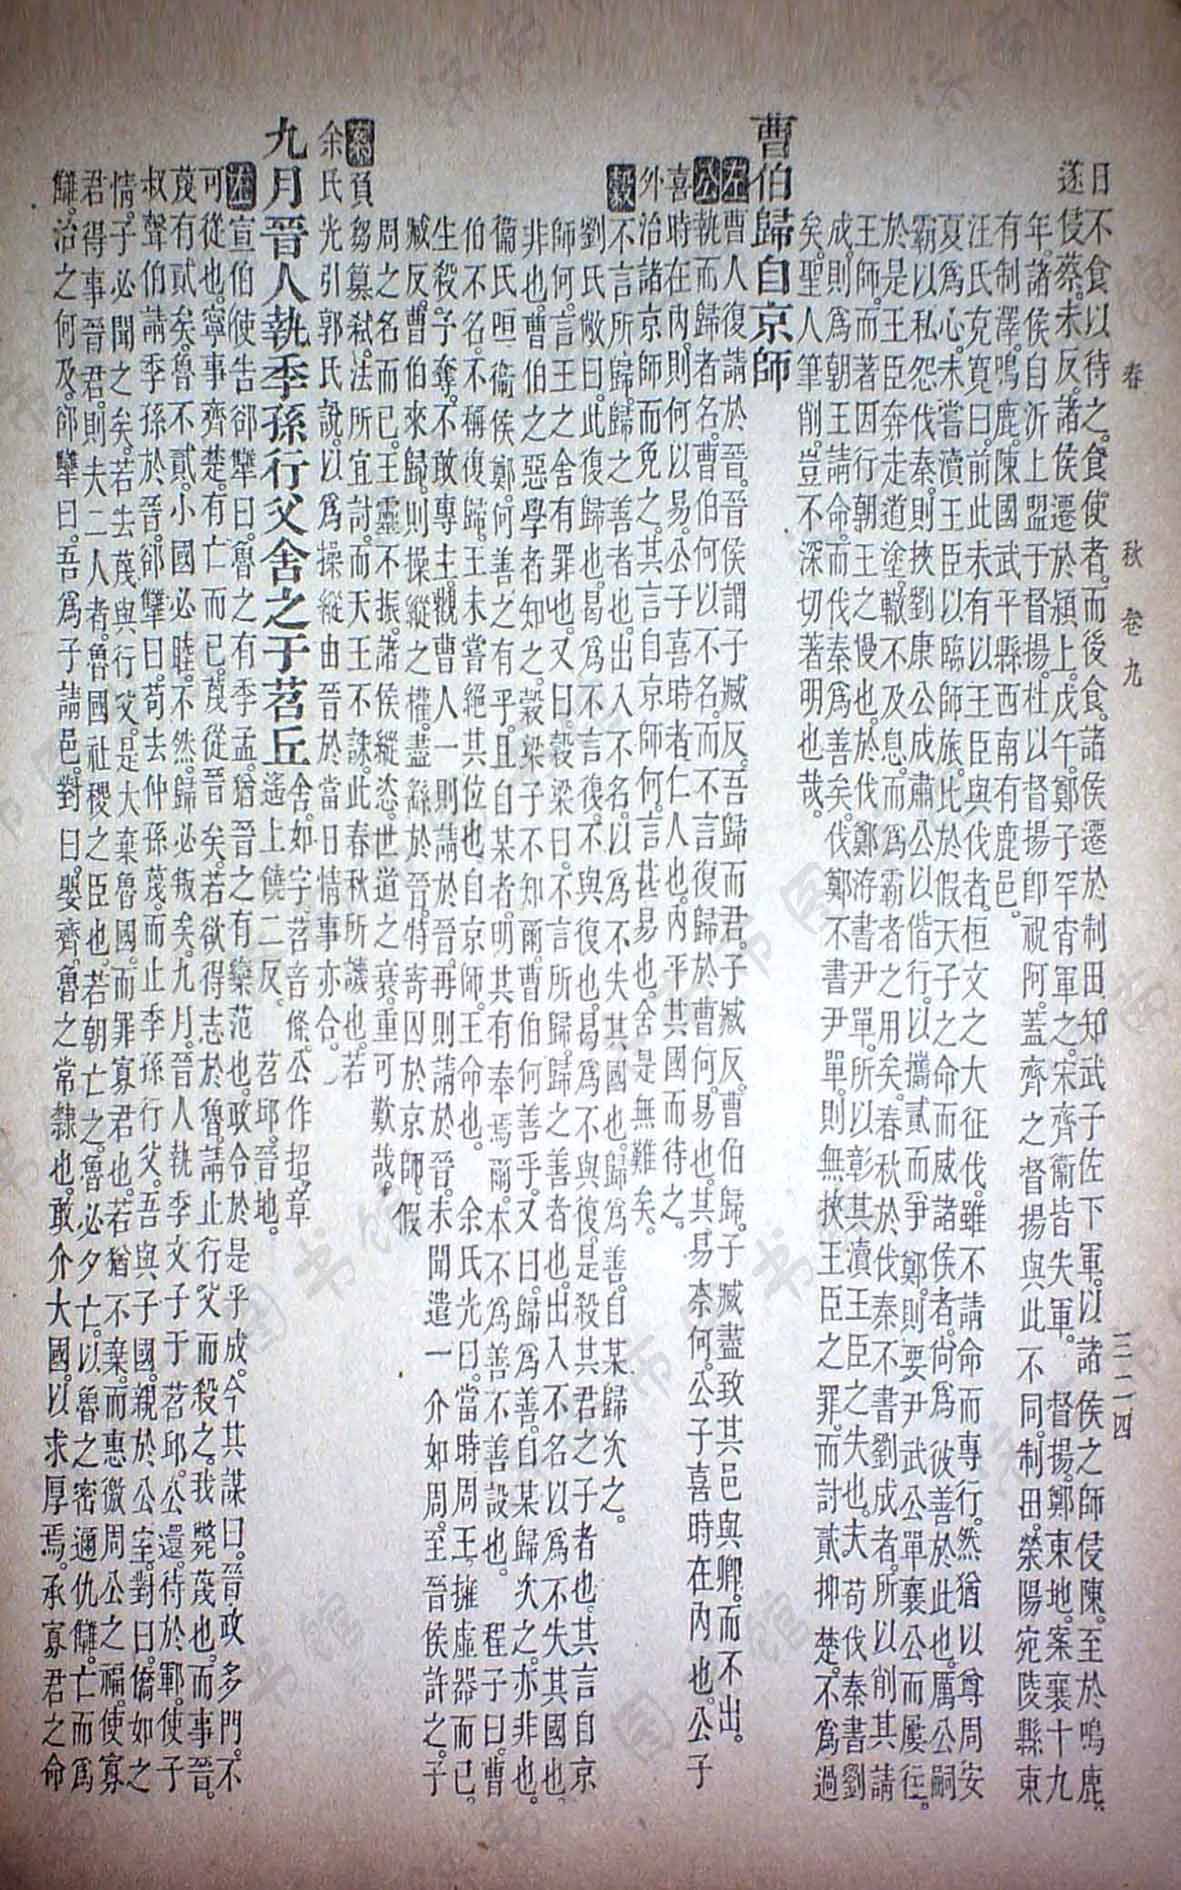 春秋 卷九 三二四
日不食以待之食使者而後食諸侯遷於制田知武子佐下軍以諸侯之師侵陳至於鳴鹿
遂侵蔡未反諸侯遷於潁上戊午鄭子罕宵軍之宋齊衞皆失軍 督揚鄭東地案襄十九
年諸侯自沂上盟于督揚杜以督揚卽祝阿蓋齊之督揚與此不同制田滎陽宛陵縣東
有制澤鳴鹿陳國武平縣西南有鹿邑
汪氏克寬曰前此未有以王臣與伐者桓文之大征伐雖不請命而專行然猶以尊周安
夏爲心未嘗瀆王臣以臨師旅比於假天子之命而威諸侯者尙爲彼善於此也厲公嗣
霸以私怨伐秦則挾劉康公成肅公以偕行以攜貳而爭鄭則要尹武公單襄公而屢往
於是王臣奔走道塗轍不及息而爲霸者之用矣春秋於伐秦不書劉成者所以削其請
王師而著因行朝王之慢也於伐鄭洊書尹單所以彰其瀆王臣之失也夫苟伐秦書劉
成則爲朝王請命而伐秦爲善矣伐鄭不書尹單則無挾王臣之罪而討貳抑楚不爲過
矣聖人筆削豈不深切著明也哉
曹伯歸自京師
左曹人復請於晉晉侯謂子臧反吾歸而君子臧反曹伯歸子臧盡致其邑與卿而不出
公執而歸者名曹伯何以不名而不言復歸於曹何易也其易奈何公子喜時在內也公子
喜時在內則何以易公子喜時者仁人也內平其國而待之
外治諸京師而免之其言自京師何言甚易也舍是無難矣
穀不言所歸歸之善者也出入不名以爲不失其國也歸爲善自某歸次之
劉氏敞曰此復歸也曷爲不言復不與復也曷爲不與復是殺其君之子者也其言自京
師何言王之舍有罪也又曰穀梁曰不言所歸歸之善者也出入不名以爲不失其國也
非也曹伯之惡學者知之穀梁子不知爾曹伯何善乎又曰歸爲善自某歸次之亦非也
衞不名不稱復歸王未嘗絕其位也自京師王命也 余氏光曰當時周王擁虛器而已
生殺子奪不敢專主觀曹人一則請於晉再則請於晉未聞遣一介如周至晉侯許之子
臧反曹伯來歸則操縱之權盡繇於晉特寄囚於京師假
周之名而已王靈不振諸侯縱恣世道之衰重可歎哉
案負芻篡弒法所宜討而天王不誅此春秋所譏也若
余氏光引郭氏說以爲操縱由晉於當日情事亦合
九月晉人執季孫行父舍之于苕丘 舍如字苕音條公作招章遙上饒二反 苕邱晉地
左宣伯使告郤犫曰魯之有季孟猶晉之有欒范也政令於是乎成今其謀曰晉政多門不
可從也寧事齊楚有亡而已蔑從晉矣若欲得志於魯請止行父而殺之我斃蔑也而事晉
蔑有貳矣魯不貳小國必睦不然歸必叛矣九月晉人執季文子于苕邱公還待於鄆使子
叔聲伯請季孫於晉郤犫曰苟去仲孫蔑而止季孫行父吾與子國親於公室對曰僑如之
情子必聞之矣若去蔑與行父是大棄魯國而罪寡君也若猶不棄而惠徼周公之福使寡
君得事晉君則夫二人者魯國社稷之臣也若朝亡之魯必夕亡以魯之密邇仇讎亡而爲
讎治之何及郤犫曰吾爲子請邑對曰嬰齊魯之常隸也敢介大國以求厚焉承寡君之命